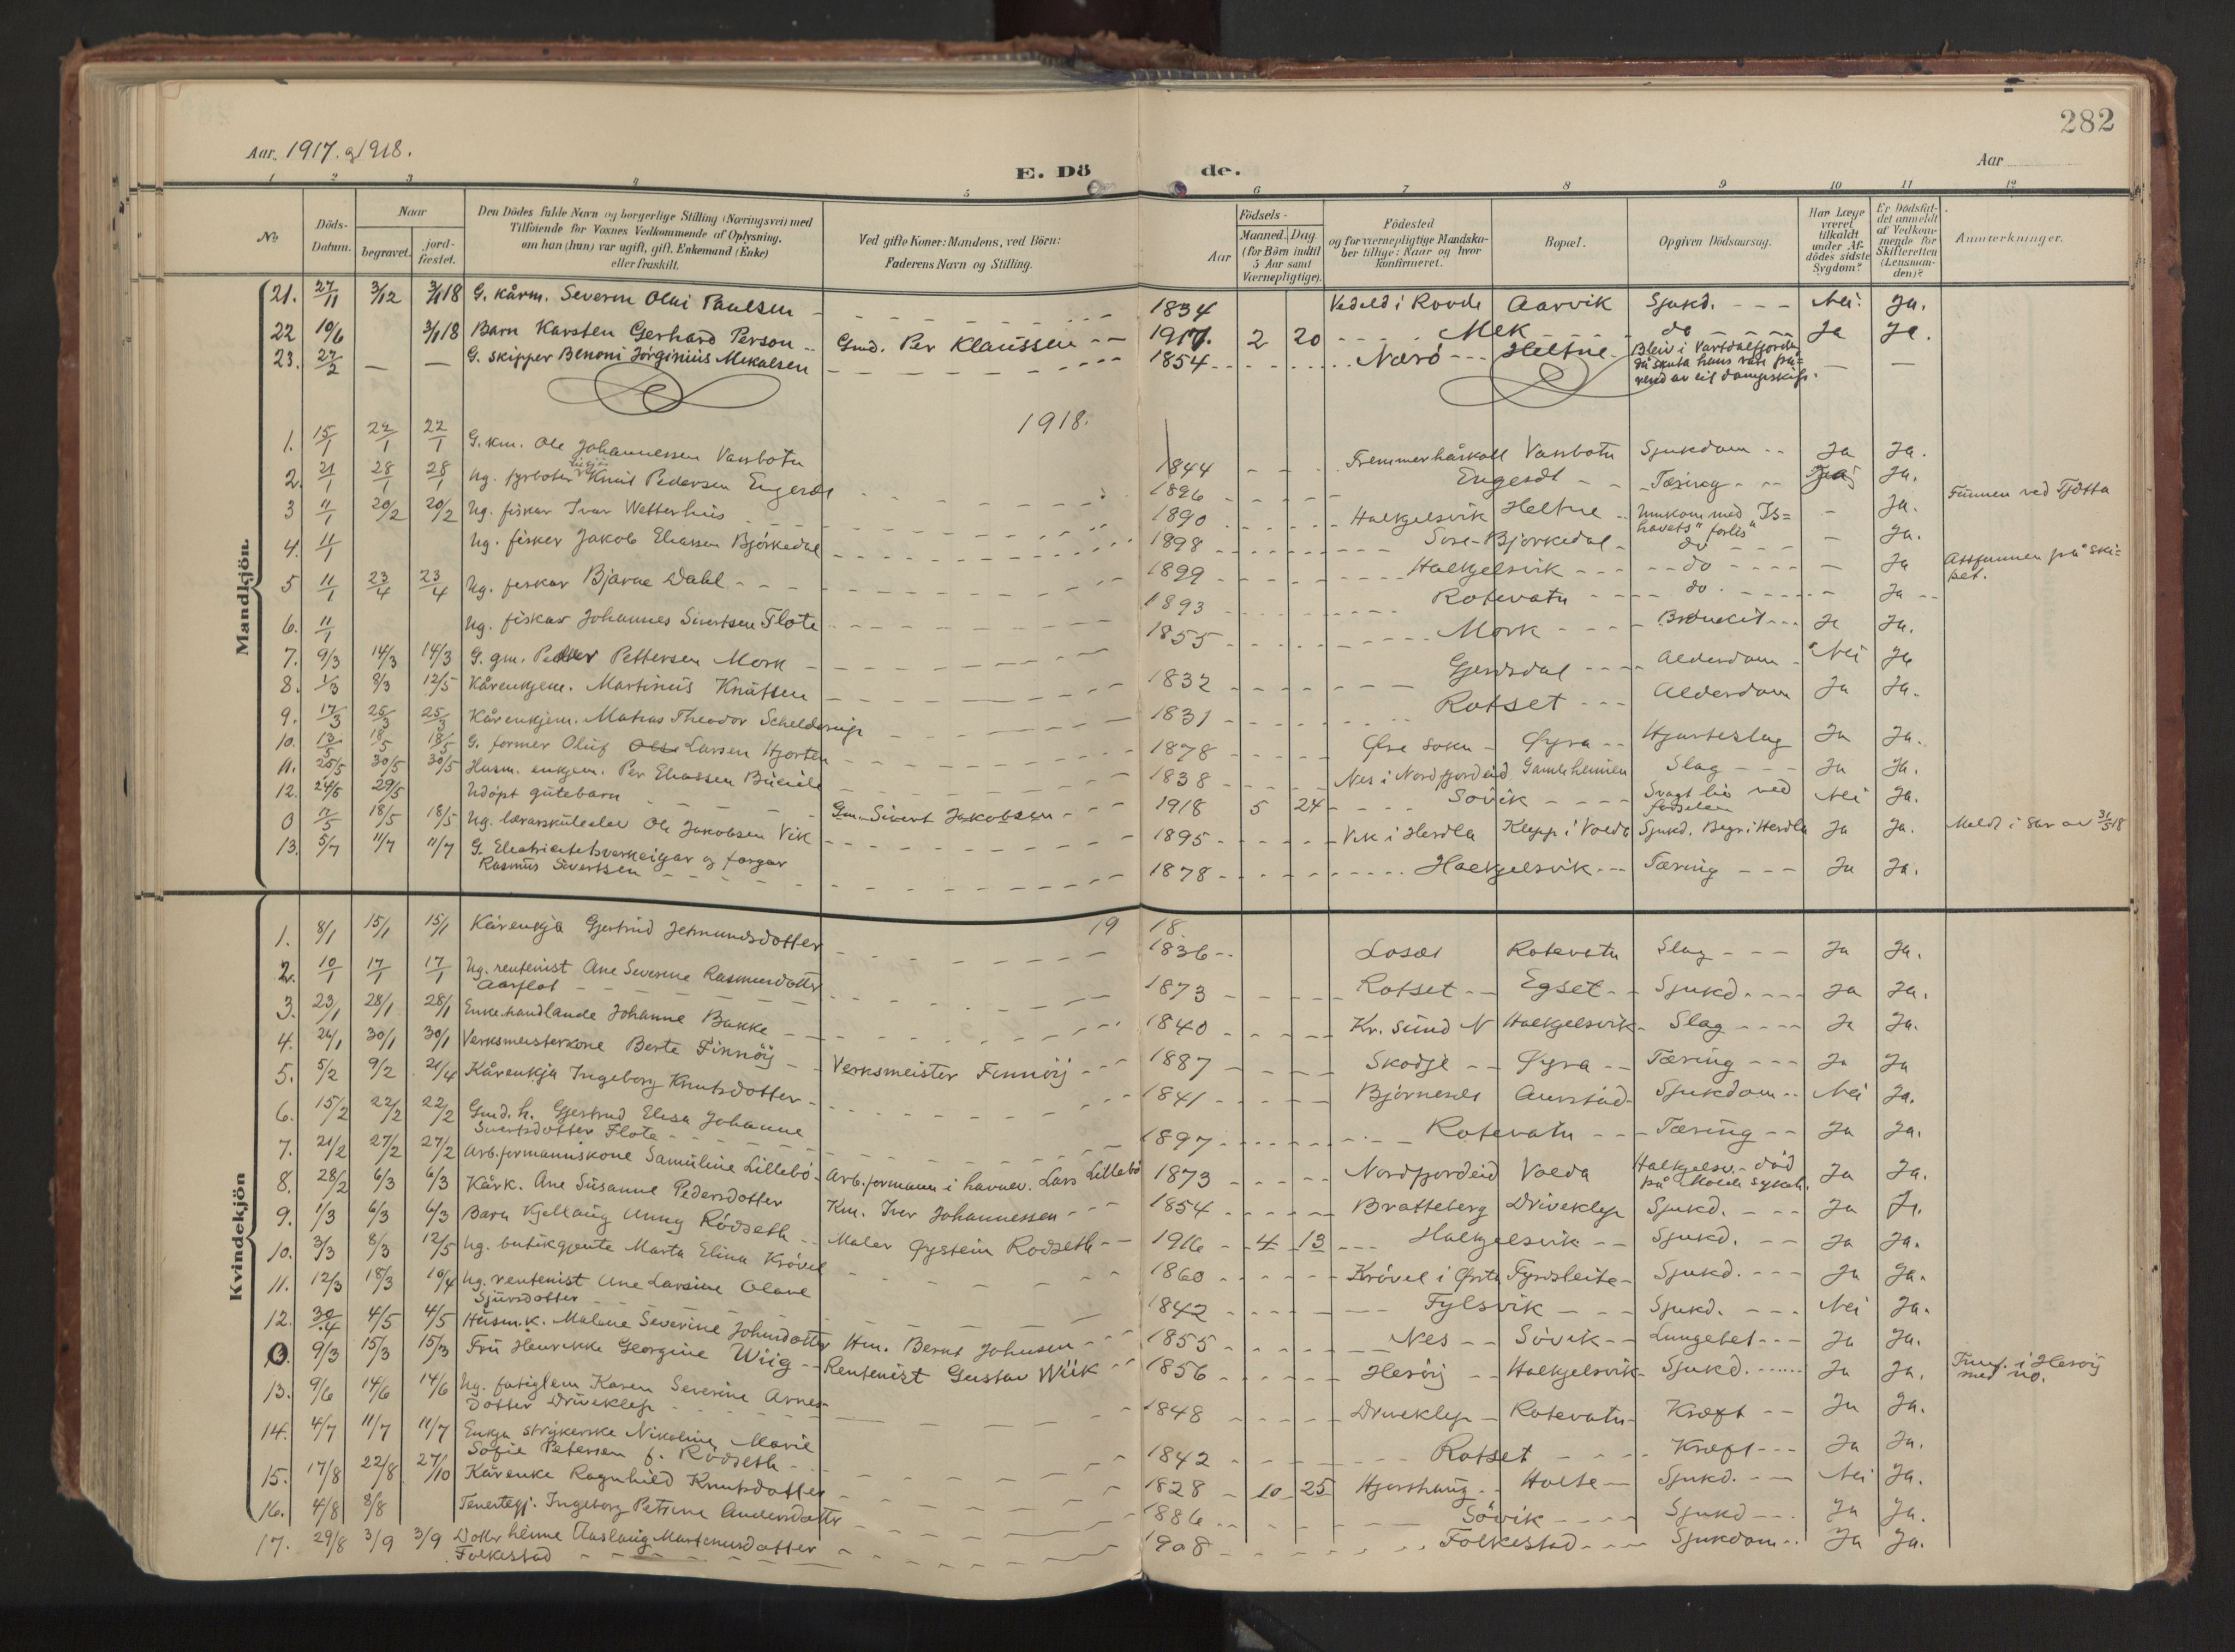 282
Aar 1917. og 1918.
Aar
E. Döde.
1 2 3 4 5 6 7 8 9 10 11 12
No
Döds-Datum.
Naar
begravet.
jord-fæstet.
Den Dödes fulde Navn og borgerlige Stilling (Næringsvei) med
Tilføiende for Voxnes Vedkommende af Oplysning,
om han (hun) var ugift, gift, Enkemand (Enke)
eller fraskilt.
Ved gifte Koner: Mandens, ved Börn:
Faderens Navn og Stilling.
Födsels-
Aar
Maaned. Dag
(for Börn indtil
5 Aar samt
Værnepligtige).
Födested
og for værnepligtige Mandska-
ber tillige: Naar og hvor
konfirmeret.
Bopæl.
Opgiven Dödsaarsag.
Har Læge
været
tilkaldt
under Af-
dödes sidste
Sygdom?
Er Dödsfal-
det anmeldt
af Vedkom-
mende for
Skifteretten
(Lensman-
den)?
Anmærkninger.
Mandkjön.
21. 27/11 3/12 3/1 18 G. kårm. Severin Olai Paulsen 1834 Vedeld i Rovde Aarvik Sjukd. Nei. Ja.
22 10/6 3/1 18 Barn Karsten Gerhard Person Gmd. Per Klaussen 1917. 2 20 Mek do Ja Ja.
23. 27/2 — — G. skipper Benoni Jørginius Mekalsen 1854 Nærö Heltne Bleiv i Vartdalsfjorden
då skuta hans vart på-
rend av eit dampskip. — —
1918.
1. 15/1 22/1 22/1 G. km. Ole Johannessen Vassbotn 1844 Fremmerhåskoll Vassbotn Sjukdom Ja Ja.
2. 21/1 28/1 28/1 Ug. fyrboter Knut Pedersen Engeset 1896 Engeset Tæring Ja.
3 11/1 20/2 20/2 Ug. fiskar Ivar Wetterhus 1890 Halkjelsvik Heltne Umkom med "Is=
havets" forlis - Ja. Funnen ved Tjøtta
4. 11/1 Ug. fisker Jakob Eliassen Bjørkedal 1898 Søre-Bjørkedal do — Ja.
5 11/1 23/4 23/4 Ug. fiskar Bjarne Dahl 1899 Halkjelsvik do — Ja Attfunnen på ski-
pet.
6. 11/1 Ug. fiskar Johannes Sivertsen Flote 1893 Rotevatn do Ja
7. 9/3 14/3 14/3 G. gm. Petter Pettersen Mork 1855 Mork Bronkit Ja Ja.
8. 1/3 8/3 12/5 Kårenkjem. Martinus Knutsen 1832 Gjerdsdal Alderdom Nei Ja
9. 17/3 25/3 25/3 Kårenkjem. Matias Theodor Schelderup 1831 Rotset Alderdom Ja Ja.
10. 13/5 18/5 18/5 G. former Oluf Larsen Hjorten 1878 Øvre sokn Øyra Hjarteslag Ja Ja.
11. 25/5 30/5 30/5 Husm. enkjem. Per Eliassen 1838 Nes i Nordfjordeid Gamleheimen Slag Ja Ja.
12. 24/5 29/5 Udöpt gutebarn Gm. Sivert Jakobsen 1918 5 24 Sövik Svagt liv ved
fødselen Nei Ja.
0 12/5 18/5 18/5 Ug. lærarskuleelev Ole Jakobsen Vik 1895 Vik i Herdla Klepp i Volda Sjukd. Begr. i Herdla Ja Ja. Meldt i brv av 31/5 18
13. 5/7 11/7 11/7 G. Electricitetsverkeigar og fargar
Rasmus Sivertsen 1878 Halkjelsvik Tæring Ja Ja.
Kvindekjön
19 18.
1. 8/1 15/1 15/1 Kårenkja Gjertrud Jetmundsdotter 1836 Loset Rotevatn Slag Ja Ja.
2. 10/1 17/1 17/1 Ug. rentenist Ane Severine Rasmusdotter
Aarflot 1873 Rotset Egset Sjukd. Ja Ja.
3. 23/1 28/1 28/1 Enkehandlande Johanne Bakke 1840 Kr. sund N Halkjelsvik Slag Ja Ja.
4. 24/1 30/1 30/1 Verksmeisterkone Berte Finnöy Verksmeister Finnöy 1887 Skodje Øyra Tæring Ja Ja
5. 5/2 9/2 21/4 Kårenkja Ingeborg Knutsdotter 1841 Björneset Aurstad Sjukdom Nei Ja.
6. 15/2 22/2 22/2 Gmd. h. Gjertrud Elisa Johanne
Sivertsdotter Flote 1897 Rotevatn Tæring Ja Ja.
7. 21/2 27/2 27/2 Arb.formannskone Samuline Lillebö Arb.formann i havnev. Lars Lillebö 1873 Nordfjordeid Volda Halkjelsv. - død
på Molde sykeh. Ja Ja.
8. 28/2 6/3 6/3 Kårk. Ane Susanne Pedersdotter Km. Iver Johannessen 1854 Bratteberg Driveklep Sjukd. Ja Ja.
9. 1/3 6/3 6/3 Barn Kjellaug Unny Rödseth Maler Øystein Rodseth 1916 4 13 Halkjelsvik Sjukd. Ja Ja.
10. 3/3 8/3 12/5 Ug. butikgjente Marta Elina Krövel 1860 Krövel i Ørsta Fyrdsleite Sjukd. Ja Ja.
11. 12/3 18/3 10/4 Ug. rentenist Ane Larsine Olave
Sjursdotter 1842 Fylsvik Sjukd. Nei Ja.
12. 30/4 4/5 4/5 Husm.k. Malene Severine Johnsdotter Hm. Bernt Johnsen 1855 Nes Sövik Lungebet. Ja Ja.
0. 9/3 15/3 15/3 Fru Henrikke Georgine Wiig Rentenist Gustav Wiik 1856 Heröy Halkjelsvik Sjukd. Ja Ja. i Heröy
med no.
13. 9/6 14/6 14/6 Ug. fatiglem Karen Severine Arnes-
dotter Driveklep 1848 Driveklep Rotevatn Kræft Ja Ja.
14. 4/7 11/7 11/7 Enkja strykerske Nikoline Marie
Sofie Petersen f. Rödseth 1842 Rotset Kræft Ja Ja.
15. 17/8 22/8 27/10 Kårenke Ragnhild Knutsdotter 1828 10 25 Hjorthaug Holte Sjukd. Nei Ja.
16. 4/8 8/8 Tenestegj. Ingeborg Petrine Andersdotter 1886 Sövik Sjukd Ja Ja.
17. 29/8 3/9 3/9 Dotter henne Aaslaug Martinusdotter
Folkestad 1908 Folkestad Sjukdom Ja Ja.